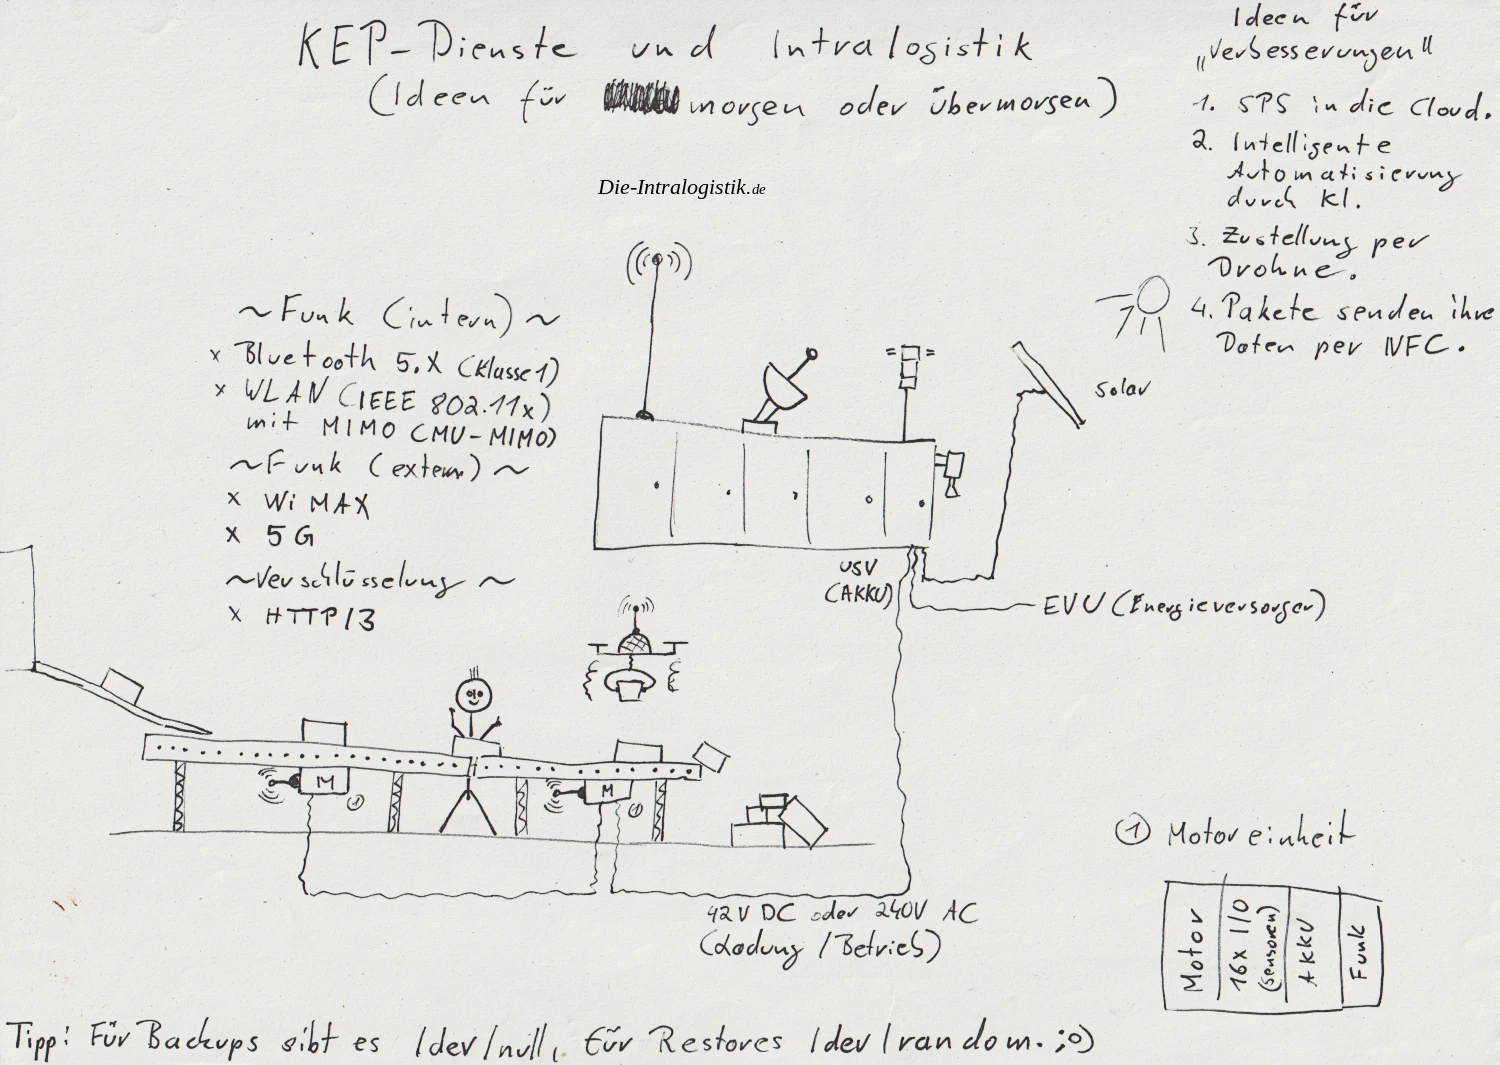 KEP-Dienste und Intralogistik
(Ideen für morgen oder übermorgen)
Die-Intralogistik.de
Ideen für
„Verbesserungen"
1. SPS in die Cloud.
2. Intelligente
Automatisierung
durch KI.
3. Zustellung per
Drohne.
4. Pakete senden ihre
Daten per NFC.
~Funk (intern)~
x Bluetooth 5.X (Klasse1)
x WLAN (IEEE 802.11x)
mit MIMO (MU-MIMO)
~Funk (extern)~
x WiMAX
x 5G
~Verschlüsselung~
x HTTP/3
Solar
USV
(AKKU)
EVU (Energieversorger)
M
1
M
1
42V DC oder 240V AC
(Ladung/Betrieb)
1 Motoreinheit
Motor
16x I/O
(Sensoren)
AKKU
Funk
Tipp: Für Backups gibt es /dev/null, für Restores /dev/random. ;o)